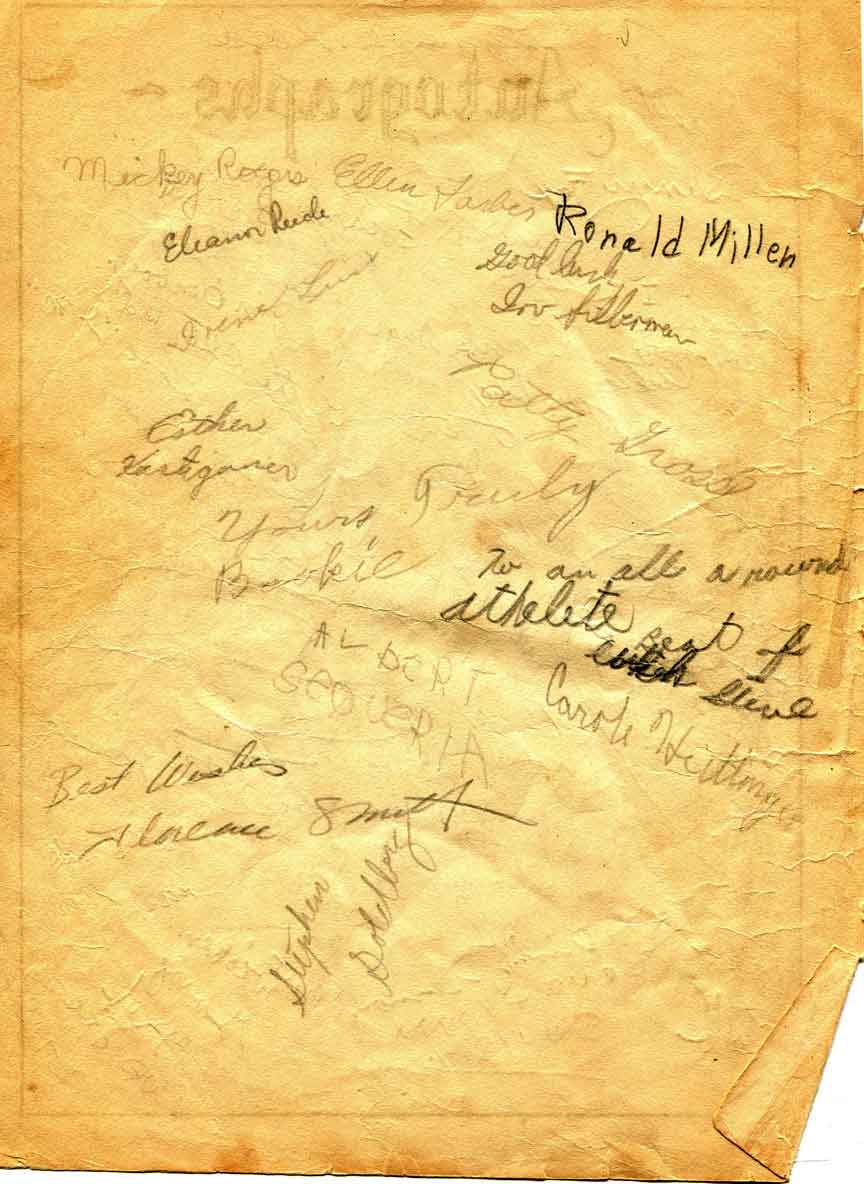 Autographs
Mickey Rogers Ellen
Eleanor
Ronald Millen
Good luck
Irv Silberman
Irene
Patty Gross
Esther
Yours Truly
Bookie
To an all around
athelete Best of
luck Steve
ALBERT
SEQUERIA
Carole
Best Wishes
Florence Smith
Stephen
Goldberg